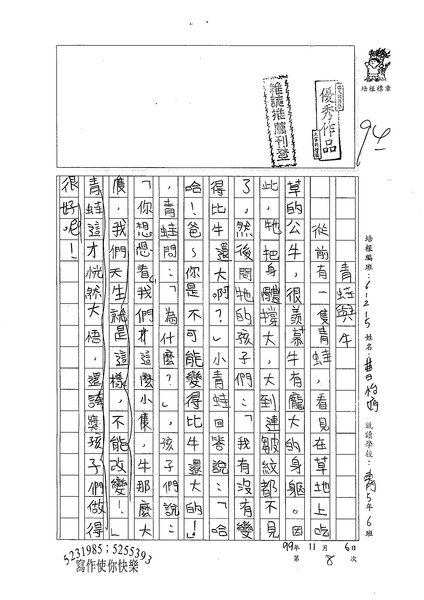 培根標章
優秀作品
推薦刊登
94
培根編班：61215 姓名： 就讀學校： 5年6班
青蛙與牛
從前有一隻青蛙，看見在草地上吃
草的公牛，很羨慕牛有龐大的身軀。因
此，牠把身體撐大，大到連皺紋都不見
了，然後問牠的孩子們：「我有沒有變
得比牛還大啊？」小青蛙回答說：「哈
哈！爸～你是不可能變得比牛還大的！」
，青蛙問：「為什麼？」，孩子們說：
「你想想看，我們才這麼小隻，牛那麼大
隻，我們天生就是這樣，不能改變！」
青蛙這才恍然大悟，還誇獎孩子們做得
很好呢！
99年11月6日
第8次
5231985；5255393
寫作使你快樂